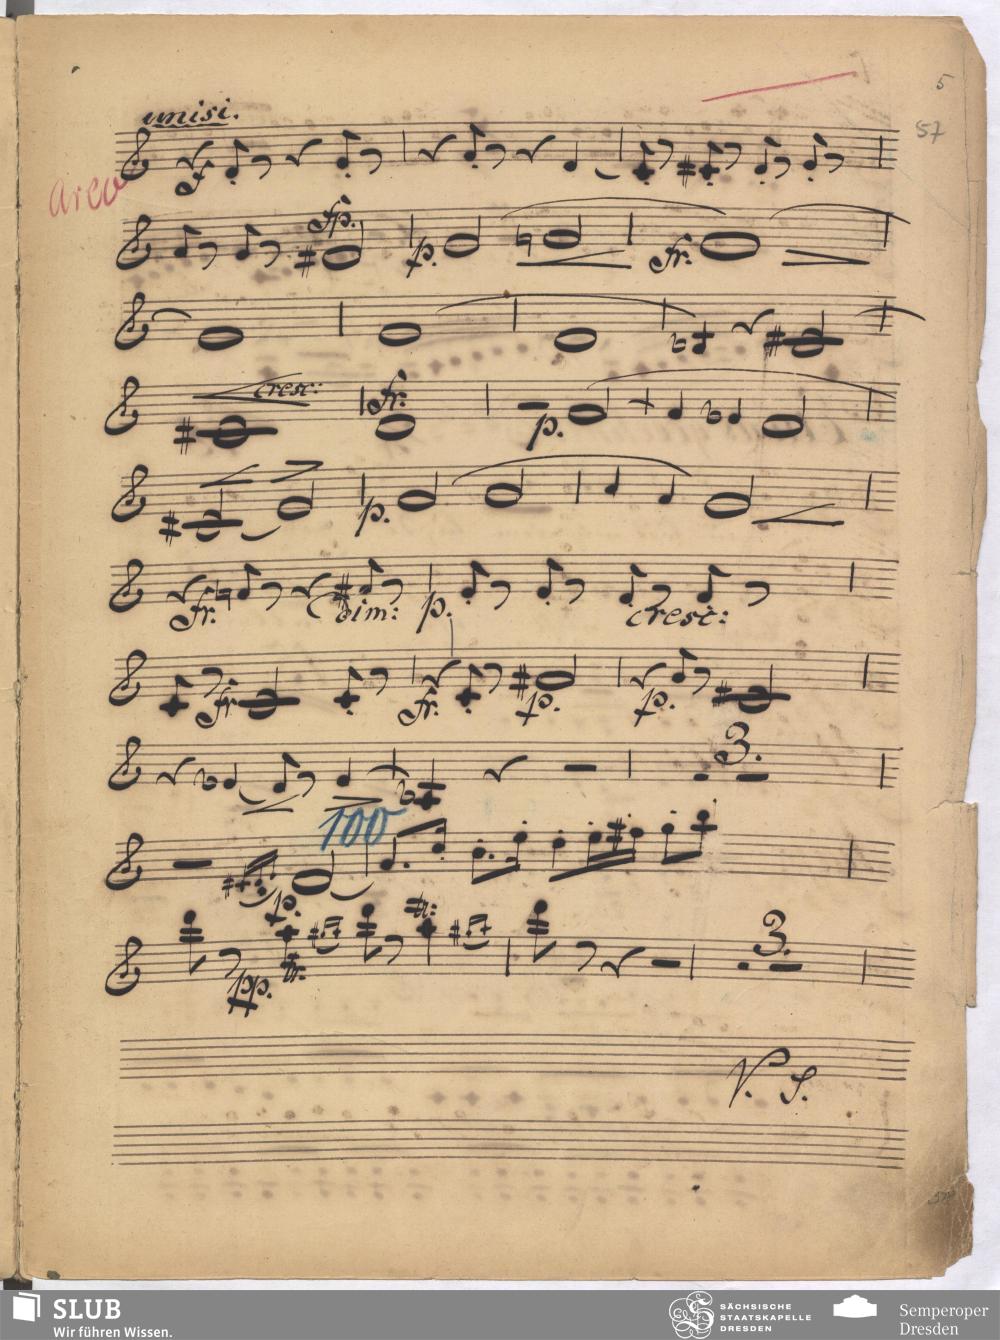 5
57
unisi.
fr
arco
fp. p. fr.
cresc: fr. p.
p.
fr. dim: p. cresc:
fr. fr. p. p.
3.
100
p.
tr. 3.
pp. tr.
V. S.
SLUB
Wir führen Wissen.
SÄCHSISCHE
STAATSKAPELLE
DRESDEN
Semperoper
Dresden